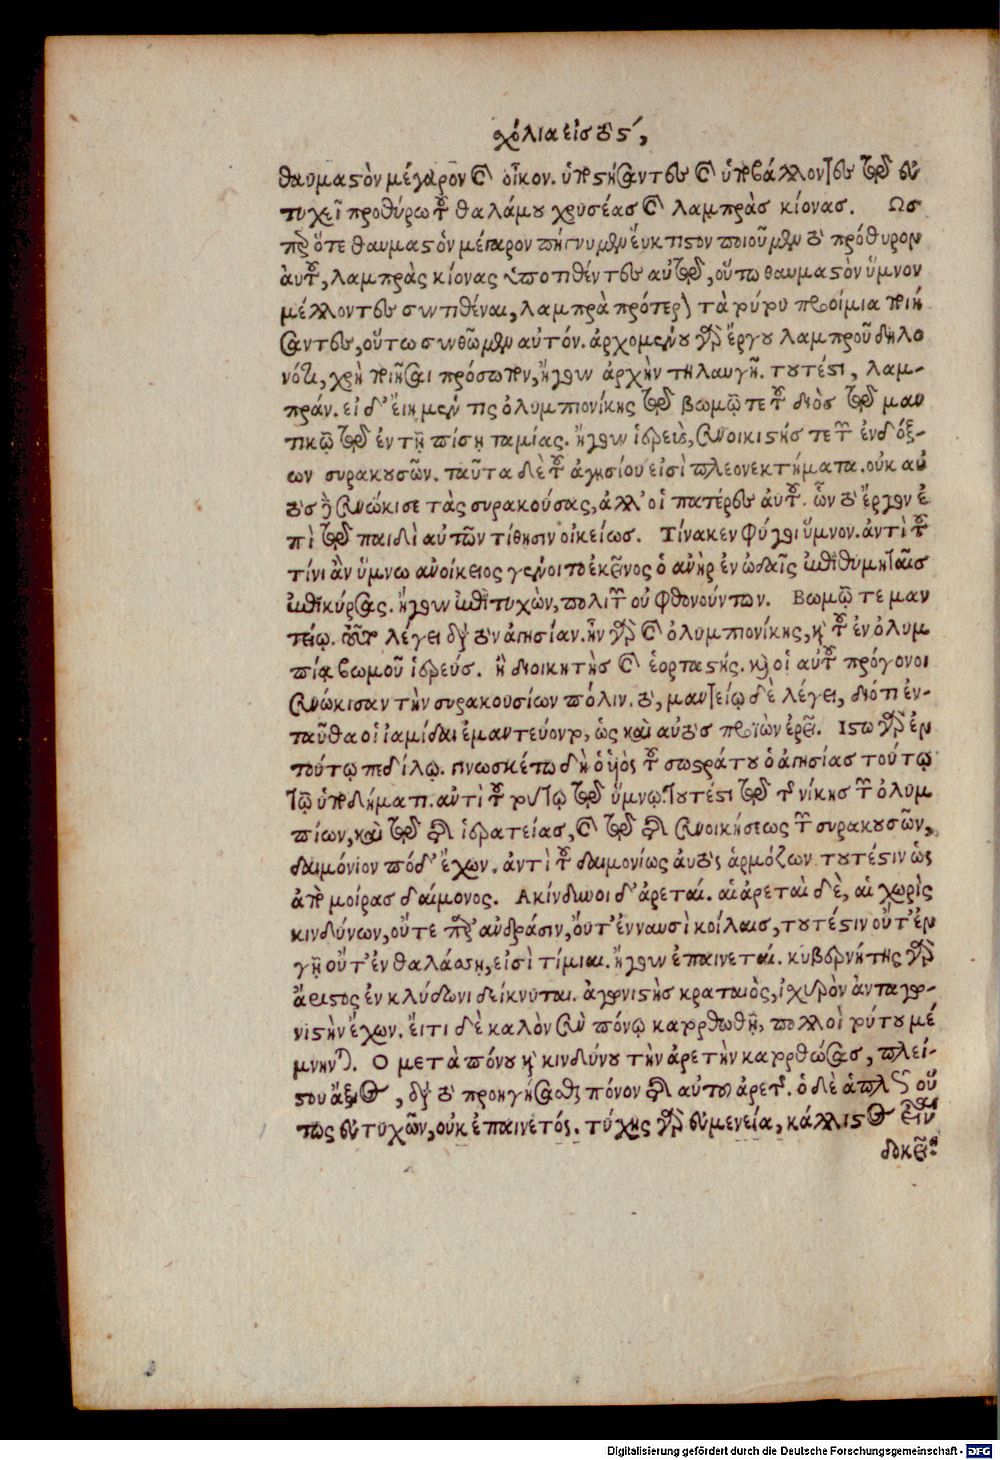 σχόλια εἰς τὸ ϛ΄,
θαυμαστὸν μέγαρον καὶ οἶκον. ὑποστήσαντες καὶ ὑποβάλλοντες τῷ εὐ
τυχεῖ προθύρῳ τοῦ θαλάμου χρυσέας καὶ λαμπρὰς κίονας. Ως
περ ὅτε θαυμαστὸν μέγαρον πήγνυμεν εὔκτιστον ποιοῦμεν τὸ πρόθυρον
αὐτοῦ, λαμπρὰς κίονας ὑποτιθέντες αὐτῷ, οὕτω θαυμαστὸν ὕμνον
μέλλοντες συντιθέναι, λαμπρὰ πρότερον τὰ τούτου προοίμια ποιή
σαντες, οὕτω συνθῶμεν αὐτόν. ἀρχομένου γὰρ ἔργου λαμπροῦ δηλο
νότι, χρὴ ποιῆσαι πρόσωπον, ἤγουν ἀρχὴν τηλαυγῆ. τουτέστι, λαμ-
πράν. εἰ δ' εἴη μὲν τις ὀλυμπιονίκης τῷ βωμῷ τε τοῦ διὸς τῷ μαν
τικῷ τῷ ἐν τῇ πίσῃ ταμίας. ἤγουν ἱερεὺς, συνοικιστής τε τῶν ἐνδόξ-
ων συρακουσῶν. ταῦτα δὲ τοῦ ἁγησίου εἰσὶ πλεονεκτήματα. οὐκ αὐ
τὸς δὲ συνώκισε τὰς συρακούσας, ἀλλ' οἱ πατέρες αὐτοῦ. ὧν τὸ ἔργον ἐ
πὶ τῷ παιδὶ αὐτῶν τίθησιν οἰκείως. Τίνα κεν φύγοι ὕμνον. ἀντὶ τοῦ
τίνι ἂν ὕμνω ἀνοίκειος γένοιτο ἐκεῖνος ὁ ἀνὴρ ἐν ὠδαῖς ἐπιθυμηταῖς
ἐπικύρσας. ἤγουν ἐπιτυχὼν, πολιτῶν οὐ φθονούντων. Βωμῷ τε μαν
τείῳ. τοῦτο λέγει διὰ τὸν ἁγησίαν. ἦν γὰρ καὶ ὀλυμπιονίκης, καὶ τοῦ ἐν ὀλυμ
πίᾳ βωμοῦ ἱερεύς. ἢ διοικητὴς καὶ ἑορταστής. καὶ οἱ αὐτοῦ πρόγονοι
συνώκισαν τὴν συρακουσίων πόλιν. τὸ, μαντείῳ δὲ λέγει, διότι ἐν-
ταῦθα οἱ ἰαμίδαι ἐμαντεύοντο, ὡς καὶ αὐτὸς προϊὼν ἐρεῖ. Ιστω γὰρ ἐν
τούτῳ πεδίλῳ. γινωσκέτω δὴ ὁ ὑϊὸς τοῦ σωστράτου ὁ ἁγησίας τούτῳ
τῷ ὑποδήματι. ἀντὶ τοῦ τούτῳ τῷ ὕμνῳ. τουτέστι τῷ τῆς νίκης τῶν ὀλυμ
πίων, καὶ τῷ περὶ ἱερατείας, καὶ τῷ περὶ συνοικήσεως τῶν συρακουσῶν,
δαιμόνιον πόδ' ἔχων. ἀντὶ τοῦ δαιμονίως αὐτὸς ἁρμόζων. τουτέστιν ὡς
ἀπὸ μοίρας δαίμονος. Ακίνδυνοι δ' ἀρεταί. αἱ ἀρεταὶ δὲ, αἱ χωρὶς
κινδύνων, οὔτε παρ' ἀνδράσιν, οὔτ' ἐν ναυσὶ κοίλαις, τουτέστιν οὔτ' ἐν
γῇ οὔτ' ἐν θαλάσσῃ, εἰσὶ τίμιαι. ἤγουν ἐπαινεταί. κυβερνήτης γὰρ
ἄριστος ἐν κλύδωνι δείκνυται. ἀγωνιστὴς κραταιὸς, ἰσχυρὸν ἀνταγω-
νιστὴν ἔχων. εἴ τι δὲ καλὸν σὺν πόνῳ κατορθωθῇ, πολλοὶ τούτου μέ
μνηνται. Ο μετὰ πόνου καὶ κινδύνου τὴν ἀρετὴν κατορθώσας, πλεί-
στου ἄξιος, διὰ τὸ προηγήσασθαι πόνον περὶ αὐτοῦ ἀρετῆς. ὁ δὲ ἁπλῶς οὕ
τως εὐτυχῶν, οὐκ ἐπαινετός. τύχης γὰρ εὐμενείᾳ, κάλλιστος εἶναι
δοκεῖ.
Digitalisierung gefördert durch die Deutsche Forschungsgemeinschaft - DFG